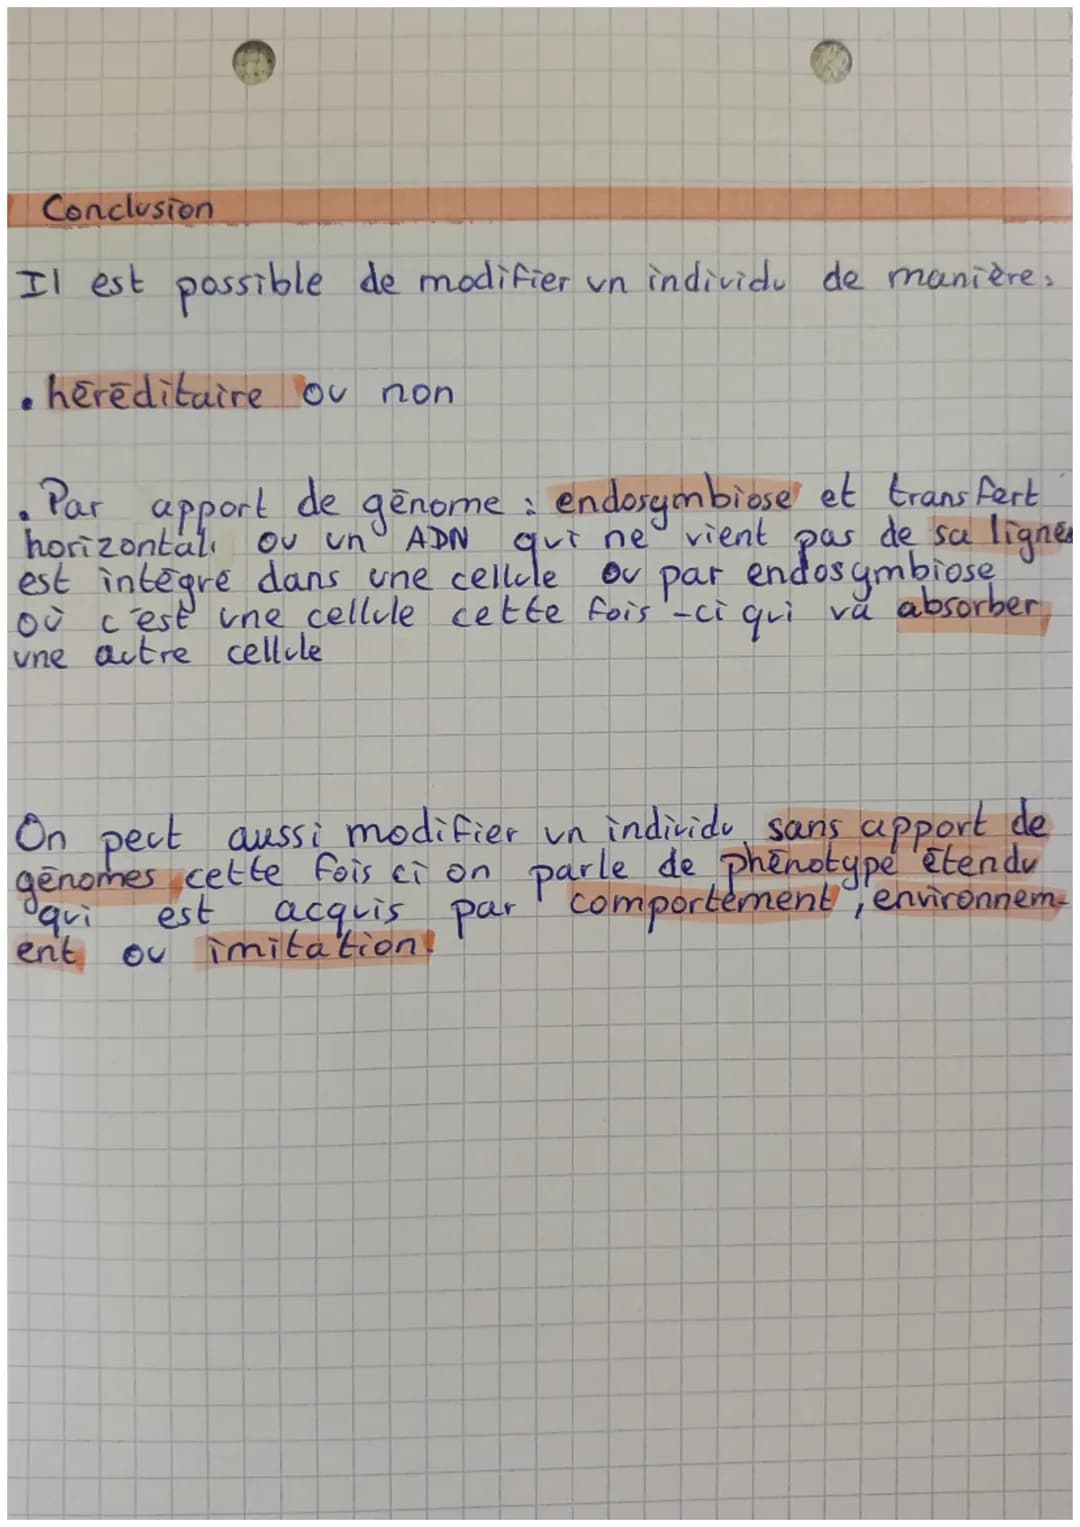 Conclusion
Il est possible de modifier un individu de manière :
• héréditaire ou non
• Par apport de génome : endosymbiose et transfert
horizontal. ou un ADN qui ne vient pas de sa lignée
est intégré dans une cellule ou par endosymbiose
où c'est une cellule cette fois-ci qui va absorber
une autre cellule
On peut aussi modifier un individu sans apport de
génomes cette fois ci on parle de phénotype étendu
qui est acquis par comportement, environnem-
ent ou imitation.